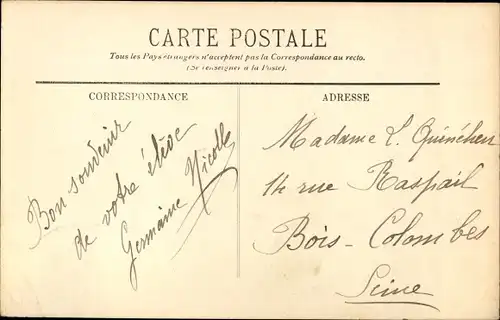 CARTE POSTALE
Tous les Pays étrangers n'acceptent pas la Correspondance au recto.
(Se renseigner à la Poste).
CORRESPONDANCE
Bon souvenir
de votre élève
Germaine Nicolle
ADRESSE
Madame L. Quinéhen
14 rue Raspail
Bois-Colombes
Seine